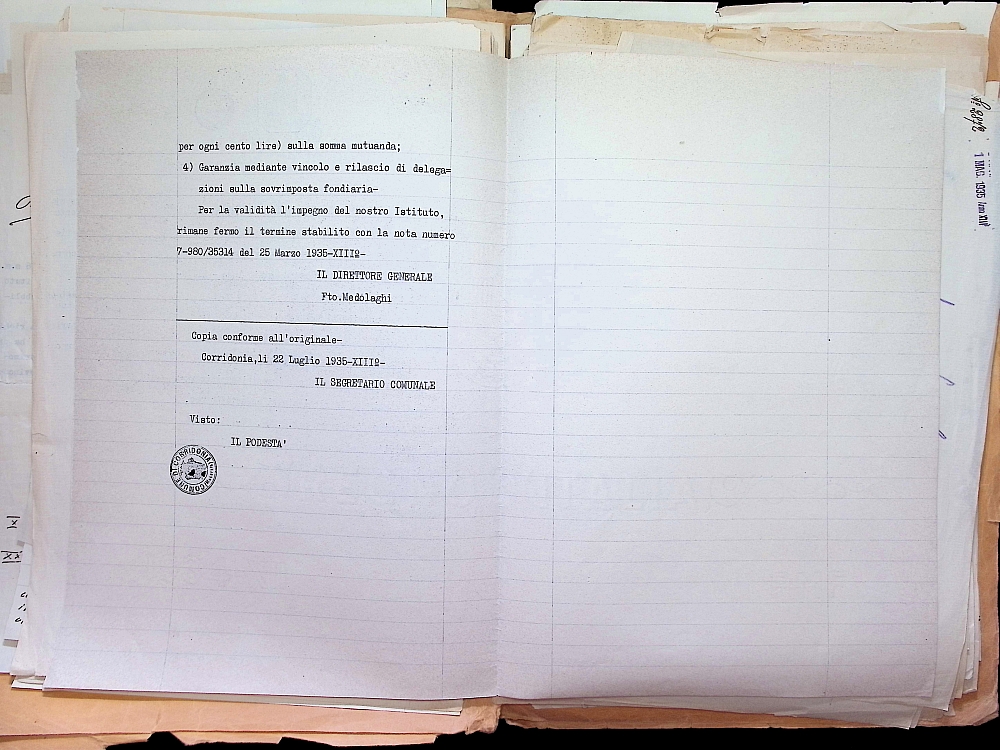 per ogni cento lire) sulla somma mutuanda;
4) Garanzia mediante vincolo e rilascio di delega=
zioni sulla sovrimposta fondiaria-
Per la validità l'impegno del nostro Istituto,
rimane fermo il termine stabilito con la nota numero
7-980/35314 del 25 Marzo 1935-XIIIº-
IL DIRETTORE GENERALE
Fto.Medolaghi
Copia conforme all'originale-
Corridonia,li 22 Luglio 1935-XIIIº-
IL SEGRETARIO COMUNALE
Visto:
IL PODESTA'
COMUNE DI CORRIDONIA
1 MAG. 1935 Anno XIII